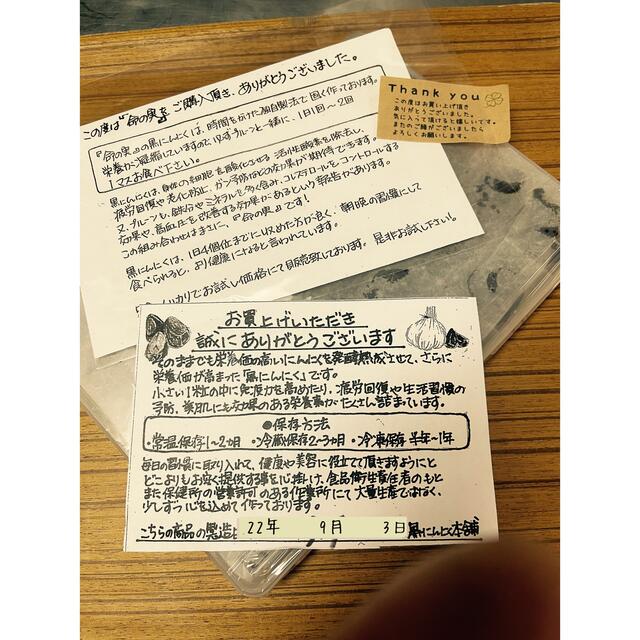 この度は『命の実』をご購入頂き、ありがとうございました。
『命の実』の黒にんにくは、時間をかけた独自製法で固く作っております。
栄養が凝縮していますので、必ずプルーンと一緒に、1日1回〜2回
1マスお食べ下さい。
黒にんにくは、身体の細胞を酸化させる活性酸素を除去し、
疲労回復や老化防止、ガン予防などの効果が期待できます。
又、プルーンも、鉄分やミネラルを多く含み、コレステロールをコントロールする
効果や、高血圧を改善する効果があるという報告があります。
この組み合わせはまさに、『命の実』です!
黒にんにくは、1日4個位までに止めた方が良く、朝晩の習慣にして
食べられると、より健康になると言われています。
お試し価格にて販売致しております。是非お試し下さい。
Thank you
この度はお買い上げ頂き
ありがとうございました。
気に入って頂けると嬉しいです。
またのご縁がございましたら
よろしくお願いします。
お買上げいただき
誠にありがとうございます
そのままでも栄養価の高いにんにくを発酵熟成させて、さらに
栄養価が高まった「黒にんにく」です。
小さい1粒の中に免疫力を高めたり、疲労回復や生活習慣の
予防、美肌にも効果のある栄養素がたくさん詰まっています。
●保存方法
・常温保存1〜2ヵ月 ・冷蔵保存2〜3ヵ月 ・冷凍保存 半年〜1年
毎日の習慣に取り入れて、健康や美容に役立てて頂きますようにと
どこよりもお安く提供する事を心掛け、食品衛生責任者のもと
また保健所の営業許可のある作業所にて大量生産ではなく、
少しずつ心を込めて作っております。
こちらの商品の製造は 22年 9月 3日 黒にんにく本舗